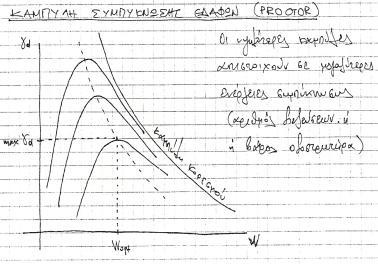 ΚΑΜΠΥΛΗ ΣΥΜΠΥΚΝΩΣΗΣ ΕΔΑΦΩΝ (PROCTOR)
γd
Οι υψηλότερες καμπύλες
αντιστοιχούν σε μεγαλύτερες
ενέργειες συμπύκνωσης
(αριθμός διελεύσεων ή
ή βάρος οδοστρωτήρα)
καμπύλη κορεσμού
max γd
Wopt
W